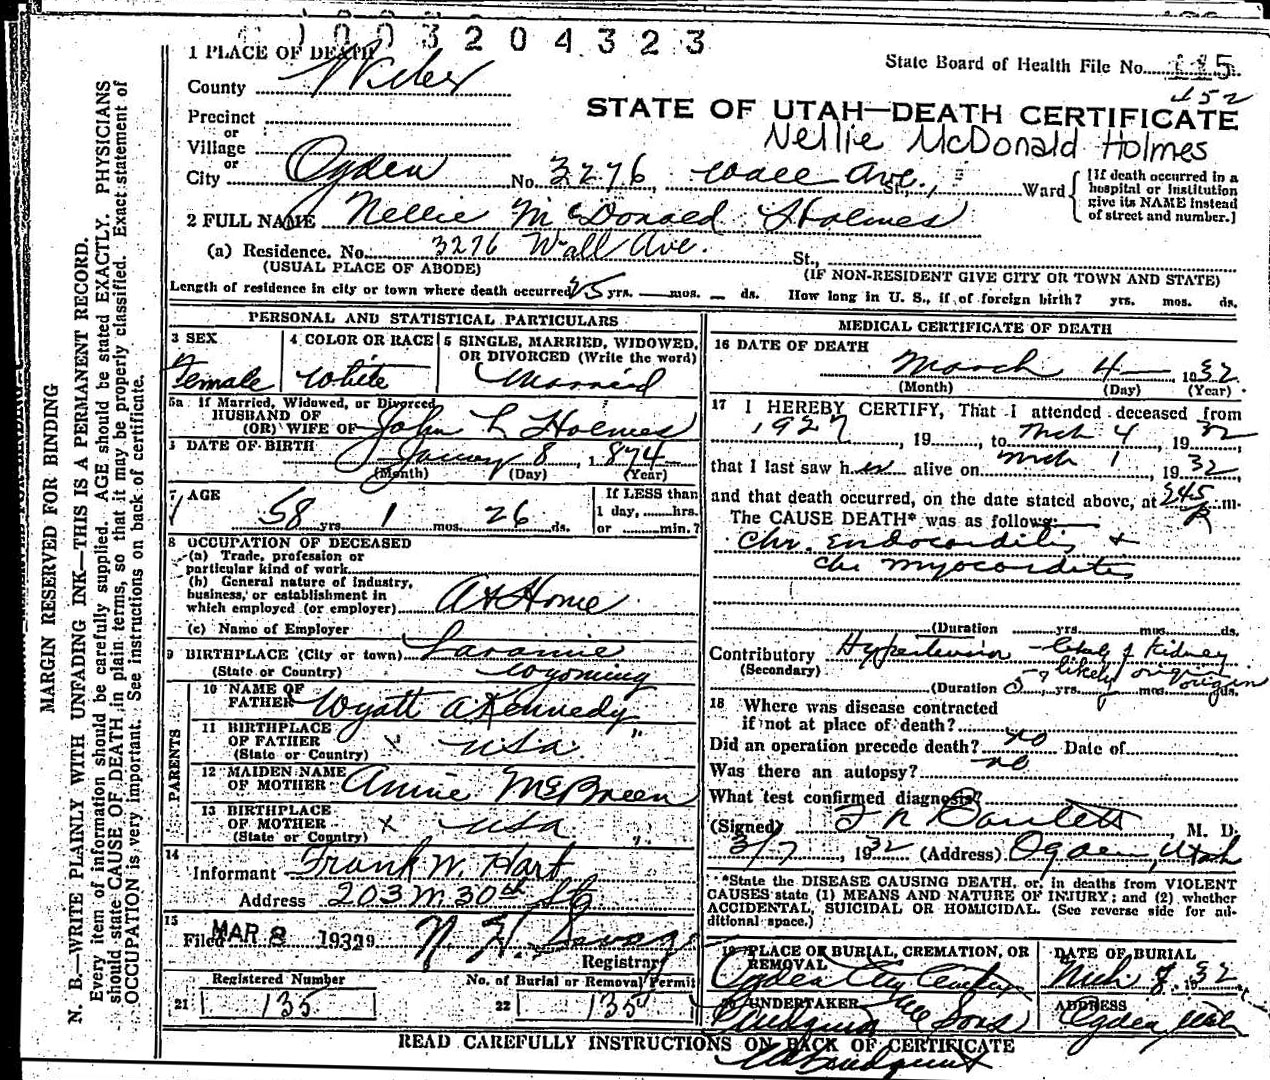 1003204323
1 PLACE OF DEATH
County Weber
State Board of Health File No. 115
452
STATE OF UTAH—DEATH CERTIFICATE
Nellie McDonald Holmes
Precinct
or
Village
or
City Ogden No. 3276, Wall Ave. St., Ward
[If death occurred in a hospital or institution give its NAME instead of street and number.]
2 FULL NAME Nellie McDonald Holmes
(a) Residence. No. 3276 Wall Ave. St.,
(USUAL PLACE OF ABODE) (IF NON-RESIDENT GIVE CITY OR TOWN AND STATE)
Length of residence in city or town where death occurred 45 yrs. — mos. — ds. How long in U. S., if of foreign birth? yrs. mos. ds.
PERSONAL AND STATISTICAL PARTICULARS
3 SEX
Female
4 COLOR OR RACE
White
5 SINGLE, MARRIED, WIDOWED, OR DIVORCED (Write the word)
Married
5a If Married, Widowed, or Divorced
HUSBAND OF
(OR) WIFE OF John L Holmes
DATE OF BIRTH
January 8, 1874
(Month) (Day) (Year)
7 AGE
58 yrs 1 mos. 26 ds.
If LESS than
1 day, hrs.
or min.?
8 OCCUPATION OF DECEASED
(a) Trade, profession or
particular kind of work
(b) General nature of industry,
business, or establishment in
which employed (or employer) At Home
(c) Name of Employer
9 BIRTHPLACE (City or town) Laramie
(State or Country) Wyoming
PARENTS
10 NAME OF
FATHER Wyatt A Kennedy
11 BIRTHPLACE
OF FATHER x USA
(State or Country)
12 MAIDEN NAME
OF MOTHER Annie McBreen
13 BIRTHPLACE
OF MOTHER x USA
(State or Country)
14
Informant Frank W. Hart
Address 203 W. 30th St
15
Filed MAR 8 1932
Registrar
Registered Number
21 135
No. of Burial or Removal Permit
22 135
MEDICAL CERTIFICATE OF DEATH
16 DATE OF DEATH
March 4 — 1932
(Month) (Day) (Year)
17 I HEREBY CERTIFY, That I attended deceased from
1927, 19, to Mch 4, 1932
that I last saw her alive on Mch 1, 1932
and that death occurred, on the date stated above, at 245 P m.
The CAUSE DEATH* was as follows:
Chr. Endocarditis +
Chr Myocarditis
(Duration yrs. mos. ds.
Contributory Hypertension - likely of Kidney
(Secondary) likely origin
origin
(Duration yrs. mos. ds.
18 Where was disease contracted
if not at place of death?
Did an operation precede death? no Date of
Was there an autopsy? no
What test confirmed diagnosis?
(Signed) , M. D.
3/7, 1932 (Address) Ogden, Utah
*State the DISEASE CAUSING DEATH, or, in deaths from VIOLENT
CAUSES state (1) MEANS AND NATURE OF INJURY; and (2) whether
ACCIDENTAL, SUICIDAL OR HOMICIDAL. (See reverse side for ad-
ditional space.)
19 PLACE OF BURIAL, CREMATION, OR
REMOVAL
Ogden City Cemetery
DATE OF BURIAL
Mch 8. 1932
20 UNDERTAKER
& Sons
ADDRESS
Ogden Utah
READ CAREFULLY INSTRUCTIONS ON BACK OF CERTIFICATE
MARGIN RESERVED FOR BINDING
N. B.—WRITE PLAINLY WITH UNFADING INK—THIS IS A PERMANENT RECORD.
Every item of information should be carefully supplied. AGE should be stated EXACTLY. PHYSICIANS
should state CAUSE OF DEATH in plain terms, so that it may be properly classified. Exact statement of
OCCUPATION is very important. See instructions on back of certificate.